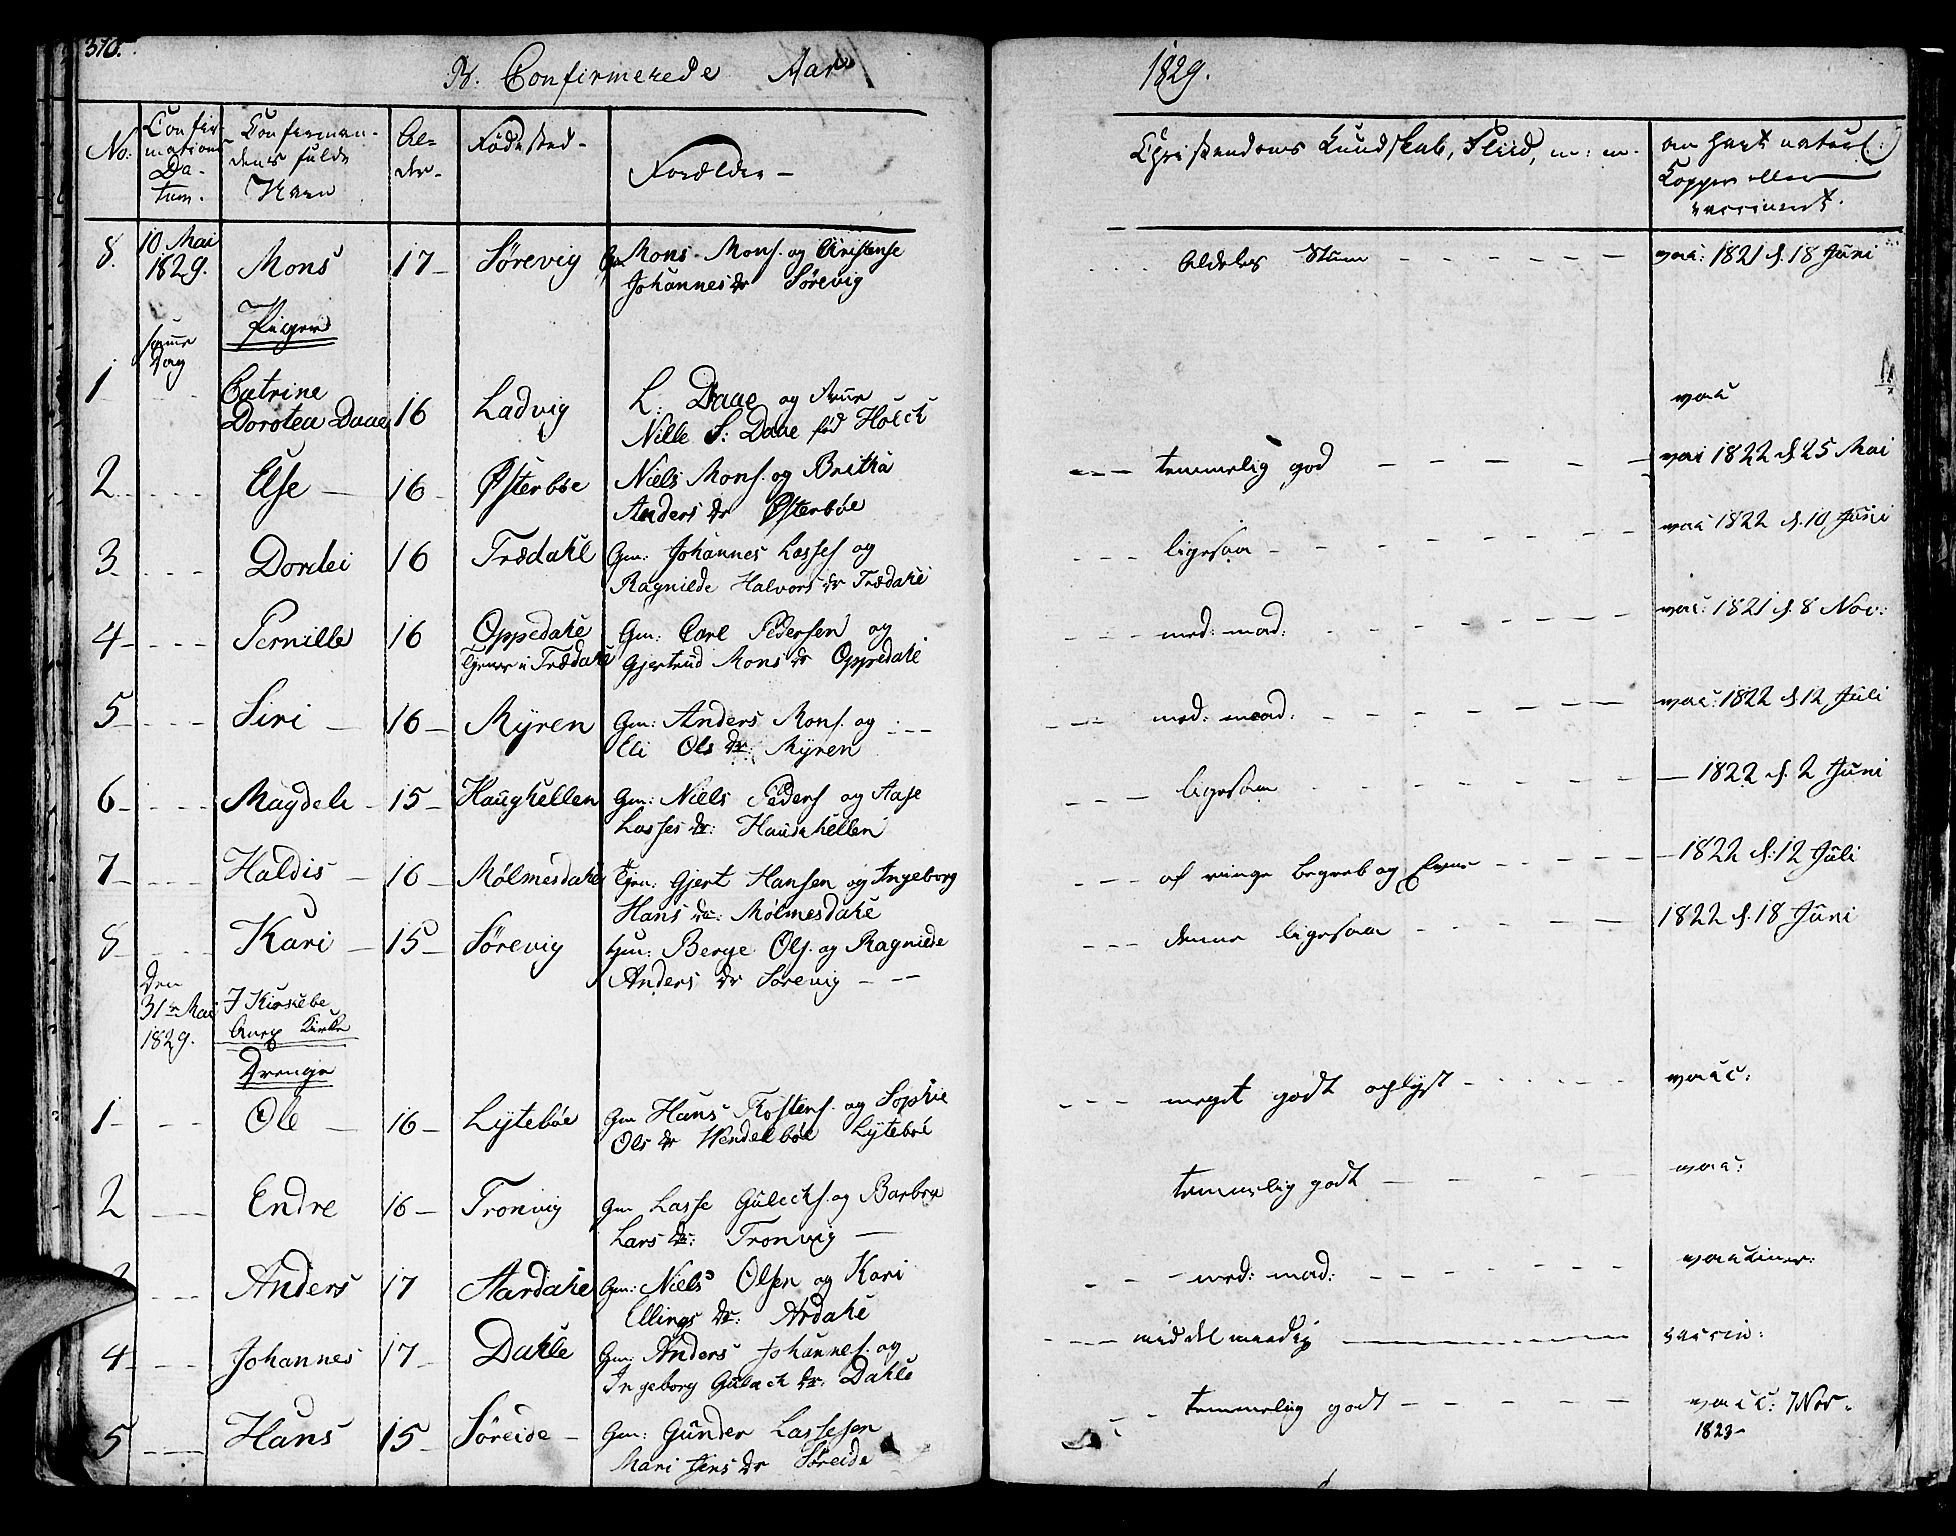 370.
B. Confirmerede Aar
1829.
No:
Confir-
mations
Da-
tum.
Confirman-
dens fulde
Navn
Al-
der.
Fødested
Forældre
Christendoms Kundskab, Fliid, m: m.
om havt naturl:
Kopper eller
vaccineret.
8. 10 Mai 1829. Mons 17 Sørevig Gm: Mons Mons. og Christense
Johannes Dr Sørevig
Aldeles Stum vac: 1821 d. 18 Juni
Piger
samme
Dag
1 Catrine
Dorotea Daae 16 Ladvig L: Daae og Frue
Nille S: Daae fød Holck
vac
2 Else 16 Østerbøe Niels Mons. og Britha
Anders Dr Østerbøe
temmelig god vac 1822 d. 25 Mai
3 Dordei 16 Trædahl Gm: Johannes Lasses og
Ragnilde Halvors Dr Trædahl
ligesaa vac 1822 d. 10 Juni
4 Pernille 16 Oppedahl
tjener i Trædahl
Gm: Carl Pedersen og
Gjertrud Mons Dr Oppedahl
med: mod: vac: 1821 d. 8 Nov:
5 Siri 16 Myren Gm: Anders Mons. og
Eli Ols Dr: Myren
med: mod: vac: 1822 d. 12 Juli
6 Magdeli 15 Haughellen Gm: Niels Peders. og Aase
Lasses Dr: Haughellen
ligesaa 1822 d. 2 Juni
7 Haldis 16 Mølmesdahl Gm: Gjert Hansen og Ingeborg
Hans Dr: Mølmesdahl
af ringe begreb og Evne 1822 d: 12 Juli
8 Kari 15 Sørevig Gm: Berge Ols. og Ragnilde
Anders Dr Sørevig
denne ligesaa 1822 d. 18 Juni
Den
31te Mai
1829.
I Kirkebø
Kirke
Drenge
1 Ole 16 Lytebøe Gm Hans Tostens. og Sophie
Ols Dr Wendelbøe Lytebøe
meget godt oplyst vacc:
2 Endre 16 Tronvig Gm Lasse Gulacks. og Barbra
Lars Dr: Tronvig
temmelig godt vac:
Anders 17 Aardahl Gm: Niels Olsen og Kari
Ellings Dr: Ardahl
med: mod: vacciner:
4 Johannes 17 Dahle Gm: Anders Johannes. og
Ingeborg Gulack Dr: Dahle
middelmaadig vaccin:
5 Hans 15 Søreide Gm: Gunder Lassesen
Mari Jens Dr Søreide
temmelig godt vacc: 7 Nov.
1823